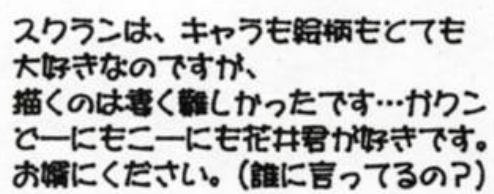 スクランは、キャラも絵柄もとても
大好きなのですが、
描くのは凄く難しかったです…ガクン
とーにもこーにも花井君が好きです。
お婿にください。(誰に言ってるの?)